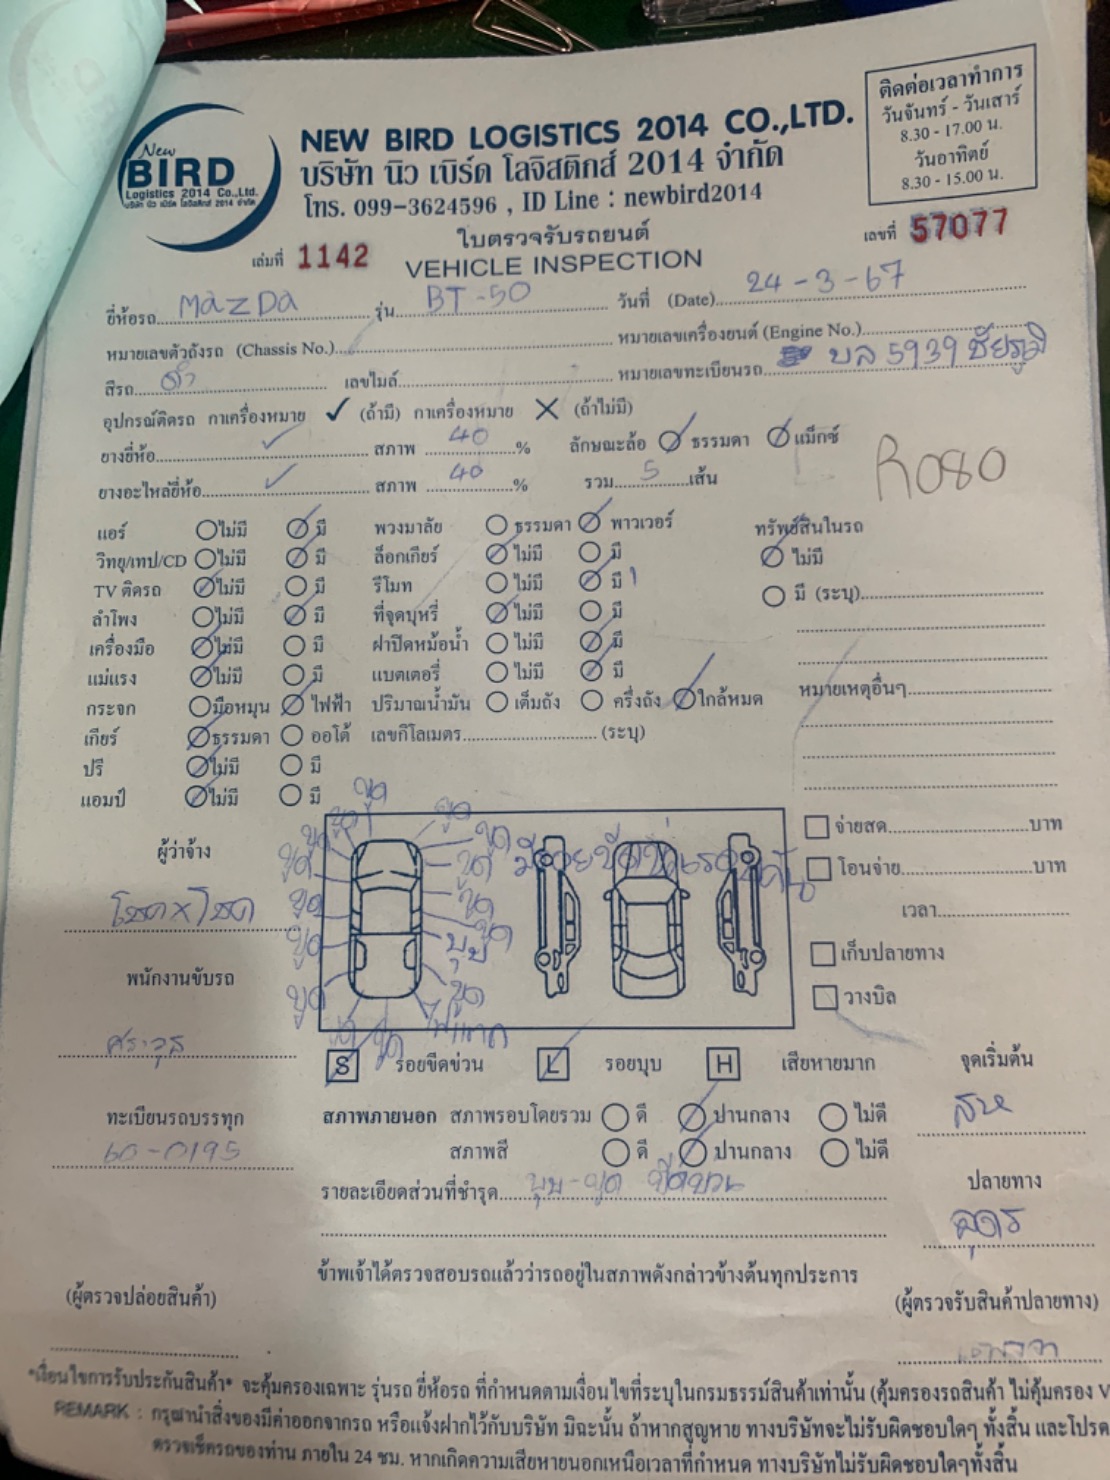 ติดต่อเวลาทำการ
วันจันทร์ - วันเสาร์
8.30 - 17.00 น.
วันอาทิตย์
8.30 - 15.00 น.
New
BIRD
Logistics 2014 Co.,Ltd.
บริษัท นิว เบิร์ด โลจิสติกส์ 2014 จำกัด
NEW BIRD LOGISTICS 2014 CO.,LTD.
บริษัท นิว เบิร์ด โลจิสติกส์ 2014 จำกัด
โทร. 099-3624596 , ID Line : newbird2014
ใบตรวจรับรถยนต์
เลขที่ 57077
เล่มที่ 1142 VEHICLE INSPECTION
ยี่ห้อรถ MAZDA รุ่น BT-50 วันที่ (Date) 24-3-67
หมายเลขตัวถังรถ (Chassis No.) หมายเลขเครื่องยนต์ (Engine No.)
สีรถ ดำ เลขไมล์ หมายเลขทะเบียนรถ บล 5939 ชัยภูมิ
อุปกรณ์ติดรถ กาเครื่องหมาย ✓ (ถ้ามี) กาเครื่องหมาย ✕ (ถ้าไม่มี)
ยางยี่ห้อ ✓ สภาพ 40 % ลักษณะล้อ ธรรมดา แม็กซ์
ยางอะไหล่ยี่ห้อ ✓ สภาพ 40 % รวม 5 เส้น
R080
แอร์ ไม่มี มี พวงมาลัย ธรรมดา พาวเวอร์ ทรัพย์สินในรถ
วิทยุ/เทป/CD ไม่มี มี ล็อกเกียร์ ไม่มี มี ไม่มี
TV ติดรถ ไม่มี มี รีโมท ไม่มี มี 1 มี (ระบุ)
ลำโพง ไม่มี มี ที่จุดบุหรี่ ไม่มี มี
เครื่องมือ ไม่มี มี ฝาปิดหม้อน้ำ ไม่มี มี
แม่แรง ไม่มี มี แบตเตอรี่ ไม่มี มี หมายเหตุอื่นๆ
กระจก มือหมุน ไฟฟ้า ปริมาณน้ำมัน เต็มถัง ครึ่งถัง ใกล้หมด
เกียร์ ธรรมดา ออโต้ เลขกิโลเมตร (ระบุ)
ปรี ไม่มี มี
แอมป์ ไม่มี มี
ขูด
ขูด ขูด ขูด
ขูด ขูด
ขูด ขูด
ขูด ขูด
ขูด บุบ
ขูด ขูด
ขูด ขูด ไฟแตก
มีรอยขีดข่วนรอบคัน
จ่ายสด บาท
โอนจ่าย บาท
เวลา
เก็บปลายทาง
วางบิล
ผู้ว่าจ้าง
โชค x โชค
พนักงานขับรถ
ศราวุธ
S รอยขีดข่วน L รอยบุบ H เสียหายมาก
จุดเริ่มต้น
ทะเบียนรถบรรทุก
60-0195
สภาพภายนอก สภาพรอบโดยรวม ดี ปานกลาง ไม่ดี
สภาพสี ดี ปานกลาง ไม่ดี
รายละเอียดส่วนที่ชำรุด บุบ-ขูด ขีดข่วน
ปลายทาง
อุดร
ข้าพเจ้าได้ตรวจสอบรถแล้วว่ารถอยู่ในสภาพดังกล่าวข้างต้นทุกประการ
(ผู้ตรวจปล่อยสินค้า)
(ผู้ตรวจรับสินค้าปลายทาง)
*เงื่อนไขการรับประกันสินค้า* จะคุ้มครองเฉพาะ รุ่นรถ ยี่ห้อรถ ที่กำหนดตามเงื่อนไขที่ระบุในกรมธรรม์สินค้าเท่านั้น (คุ้มครองรถสินค้า ไม่คุ้มครอง V
REMARK : กรุณานำสิ่งของมีค่าออกจากรถ หรือแจ้งฝากไว้กับบริษัท มิฉะนั้น ถ้าหากสูญหาย ทางบริษัทจะไม่รับผิดชอบใดๆ ทั้งสิ้น และโปรด
ตรวจเช็ครถของท่าน ภายใน 24 ชม. หากเกิดความเสียหายนอกเหนือเวลาที่กำหนด ทางบริษัทไม่รับผิดชอบใดๆทั้งสิ้น